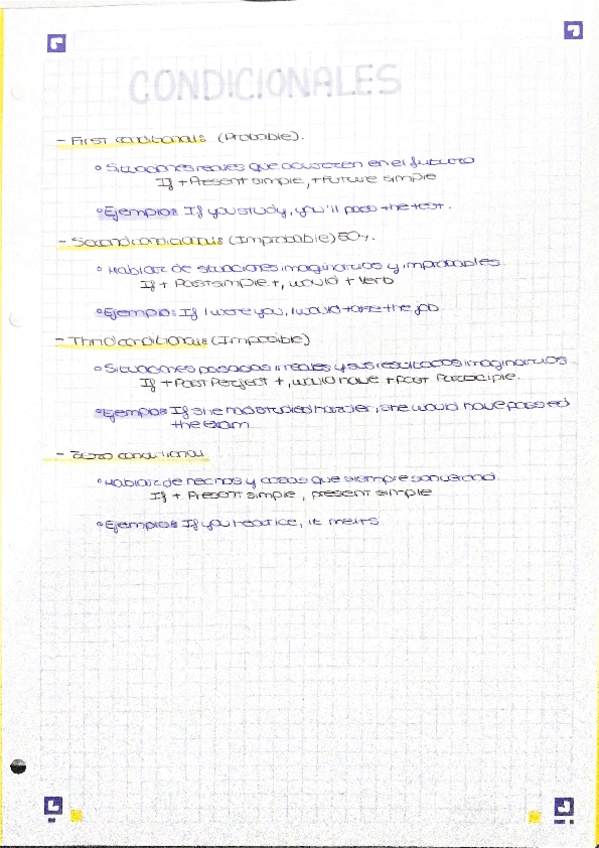 CONDICIONALES
- First conditionals (Probable).
° Situaciones reales que ocurren en el futuro
If + Present simple, + Future simple
° Ejemplo: If you study, you'll pass the test.
- Second conditionals (Improbable) 50%.
° Hablar de situaciones imaginarios y improbables
If + Past simple +, would + verb
° Ejemplo: If I were you, I would take the job
- Third conditionals (Imposible)
° Situaciones pasadas irreales y sus resultados imaginarios
If + Past Perfect +, would have + Past Participle.
° Ejemplo: If she had studied harder, she would have passed
the exam.
- Zero conditional
° Hablar de hechos y cosas que siempre son verdad
If + Present simple, present simple
° Ejemplo: If you heat ice, it melts